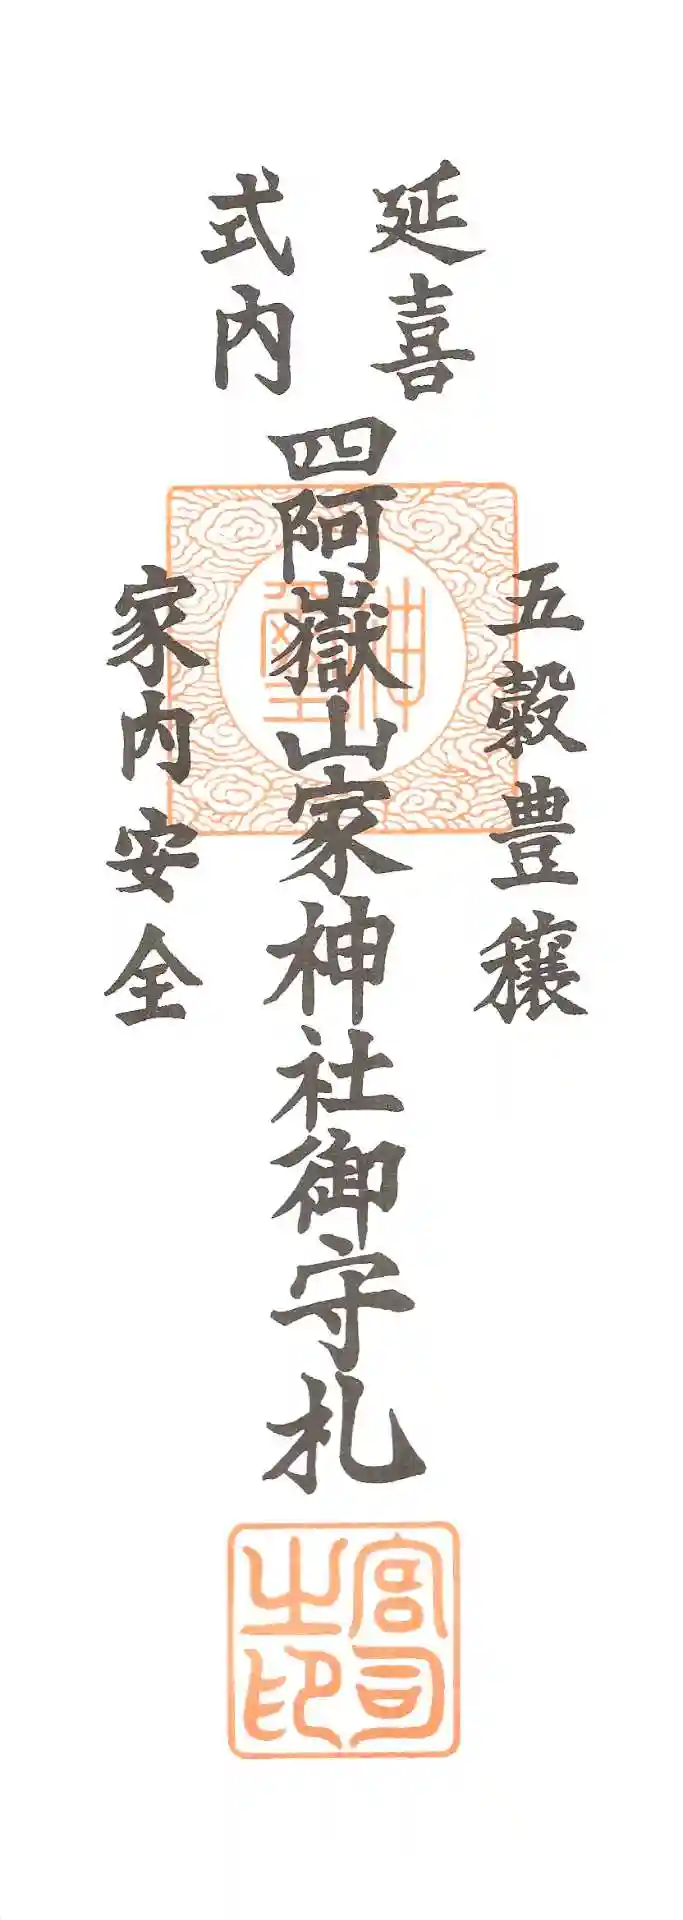 延喜
式内
五穀豊穣
四阿嶽山家神社御守札
家内安全
神璽
宮司
之印